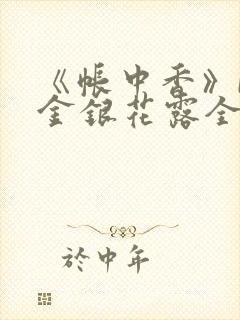 《帳中香》
金銀花露全
於中年